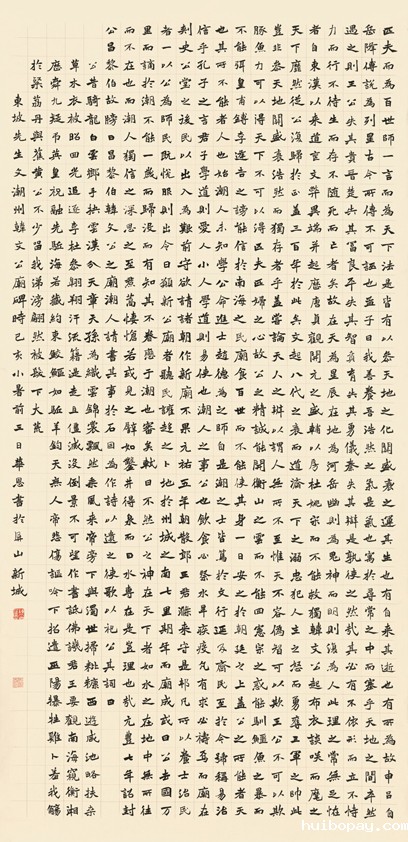 匹夫而為百世師一言而為天下法是皆有以參天地之化關盛衰之運其生也有自來其逝也有所為故申呂自
嶽降傅說為列星古今所傳不可誣也孟子曰我善養吾浩然之氣是氣也寓於尋常之中而塞乎天地之間卒然
遇之則王公失其貴晉楚失其富良平失其智賁育失其勇儀秦失其辯是孰使之然哉其必有不依形而立不恃
力而行不待生而存不隨死而亡者矣故在天為星辰在地為河嶽幽則為鬼神而明則復為人此理之常無足怪
者自東漢以來道喪文弊異端並起歷唐貞觀開元之盛輔以房杜姚宋而不能救獨韓文公起布衣談笑而麾之
天下靡然從公復歸於正蓋三百年於此矣文起八代之衰而道濟天下之溺忠犯人主之怒而勇奪三軍之帥此
豈非參天地關盛衰浩然而獨存者乎蓋嘗論天人之辨以謂人無所不至惟天不容偽智可以欺王公不可以欺
豚魚力可以得天下不可以得匹夫匹婦之心故公之精誠能開衡山之雲而不能回憲宗之惑能馴鱷魚之暴而
不能弭皇甫鎛李逢吉之謗能信於南海之民廟食百世而不能使其身一日安之於朝廷之上蓋公之所能者天
也其所不能者人也始潮人未知學公命進士趙德為之師自是潮之士皆篤於文行延及齊民至於今號稱易治
信乎孔子之言君子學道則愛人小人學道則易使也潮人之事公也飲食必祭水旱疾疫凡有求必禱焉而廟在
刺史公堂之後民以出入為艱前守欲請諸朝作新廟不果元祐五年朝散郎王君滌來守是邦凡所以養士治民
者一以公為師民既悅服則出令曰願新公廟者聽民讙趨之卜地於州城之南七里期年而廟成或曰公去國萬
里而謫於潮不能一歲而歸沒而有知其不眷戀於潮也審矣軾曰不然公之神在天下者如水之在地中無所往
而不在也而潮人獨信之深思之至焄蒿悽愴若或見之譬如鑿井得泉而曰水專在是豈理也哉元豐七年詔封
公昌黎伯故牓曰昌黎伯韓文公之廟潮人請書其事於石因為作詩以遺之使歌以祀公其詞曰
公昔騎龍白雲鄉手抉雲漢分天章天孫為織雲錦裳飄然乘風來帝旁下與濁世掃粃糠西遊咸池略扶桑
草木衣被昭回光追逐李杜參翱翔汗流籍湜走且僵滅沒倒景不得望作書詆佛譏君王要觀南海窺衡湘
歷舜九疑弔英皇祝融先驅海若藏約束鮫鱷如驅羊鈞天無人帝悲傷謳吟下招遣巫陽犦牲雞卜羞我觴
於粲荔丹與蕉黃公不少留我涕滂翩然被髮下大荒
東坡先生文潮州韓文公廟碑時己亥小暑前三日華恩書於屏山新城
huibopay.com